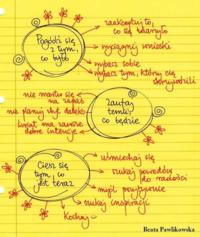 Pogódź się
z tym,
co było
zaakceptuj to,
co się zdarzyło
wyciągnij wnioski
wybacz sobie
wybacz tym, którzy cię
skrzywdzili
Zaufaj
temu,
co będzie
nie martw się
na zapas
nie planuj zbyt daleko
świat ma zawsze
dobre intencje
Ciesz się
tym, co
jest teraz
uśmiechaj się
szukaj powodów
do radości
myśl pozytywnie
szukaj inspiracji
Kochaj
Beata Pawlikowska